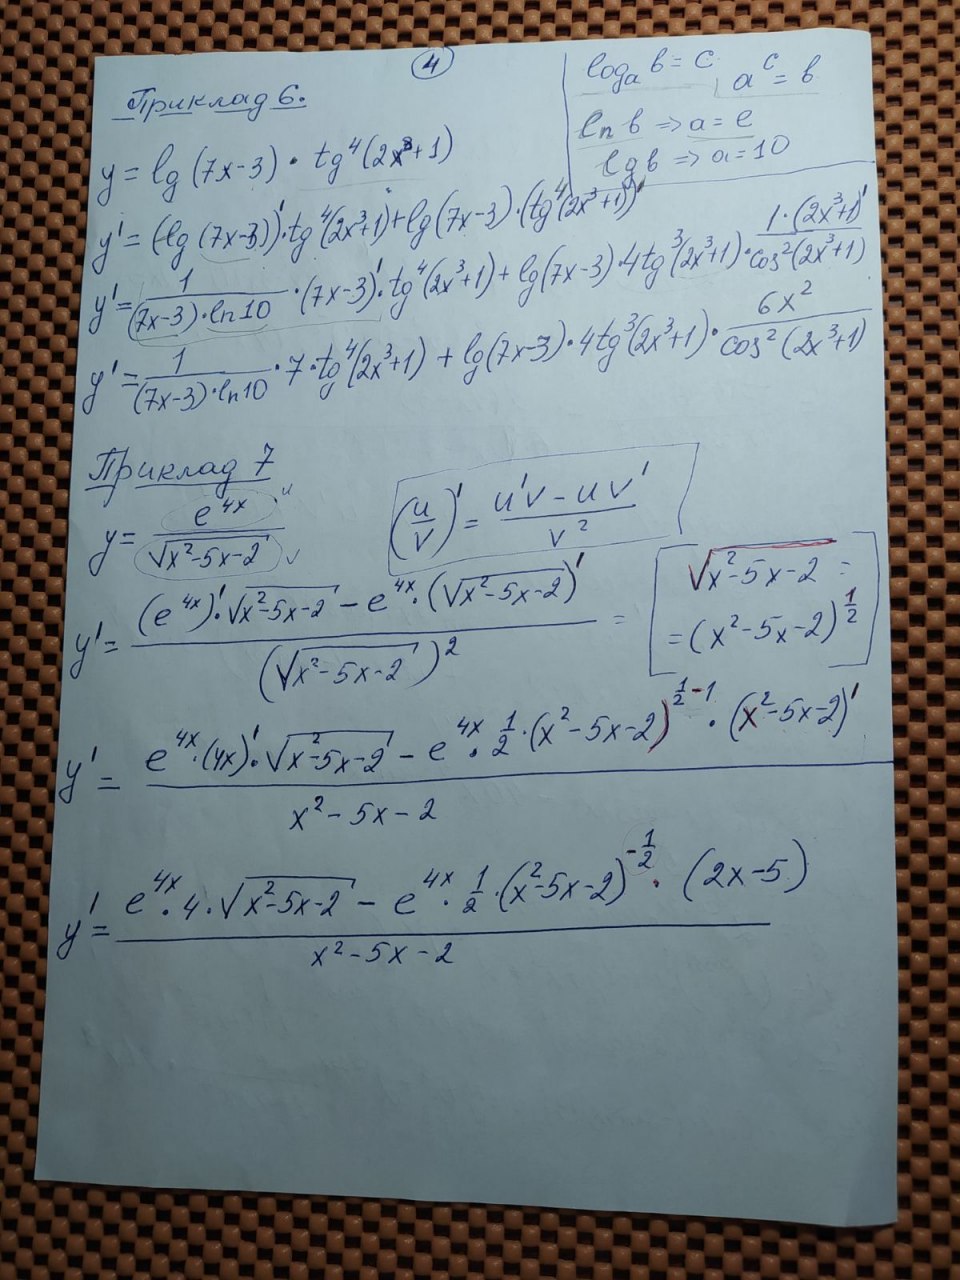 4
log_a b = c   a^c = b
ln b => a = e
lg b => a = 10
Приклад 6.
y = lg (7x-3) · tg⁴(2x³+1)
y' = (lg (7x-3))'·tg⁴(2x³+1)+lg(7x-3)·(tg⁴(2x³+1))'
y' = 1/((7x-3)·ln10) · (7x-3)'·tg⁴(2x³+1) + lg(7x-3)·4tg³(2x³+1)· (1·(2x³+1)')/(cos²(2x³+1))
y' = 1/((7x-3)·ln10) · 7·tg⁴(2x³+1) + lg(7x-3)·4tg³(2x³+1)· (6x²)/(cos²(2x³+1))
Приклад 7
y = e^(4x) / √(x²-5x-2)   u   v
(u/v)' = (u'v - uv')/v²
y' = ((e^(4x))'·√(x²-5x-2) - e^(4x)·(√(x²-5x-2))') / (√(x²-5x-2))² =
√(x²-5x-2) =
= (x²-5x-2)^(1/2)
y' = (e^(4x)·(4x)'·√(x²-5x-2) - e^(4x)·1/2·(x²-5x-2)^(1/2-1)·(x²-5x-2)') / (x²-5x-2)
y' = (e^(4x)·4·√(x²-5x-2) - e^(4x)·1/2·(x²-5x-2)^(-1/2)·(2x-5)) / (x²-5x-2)